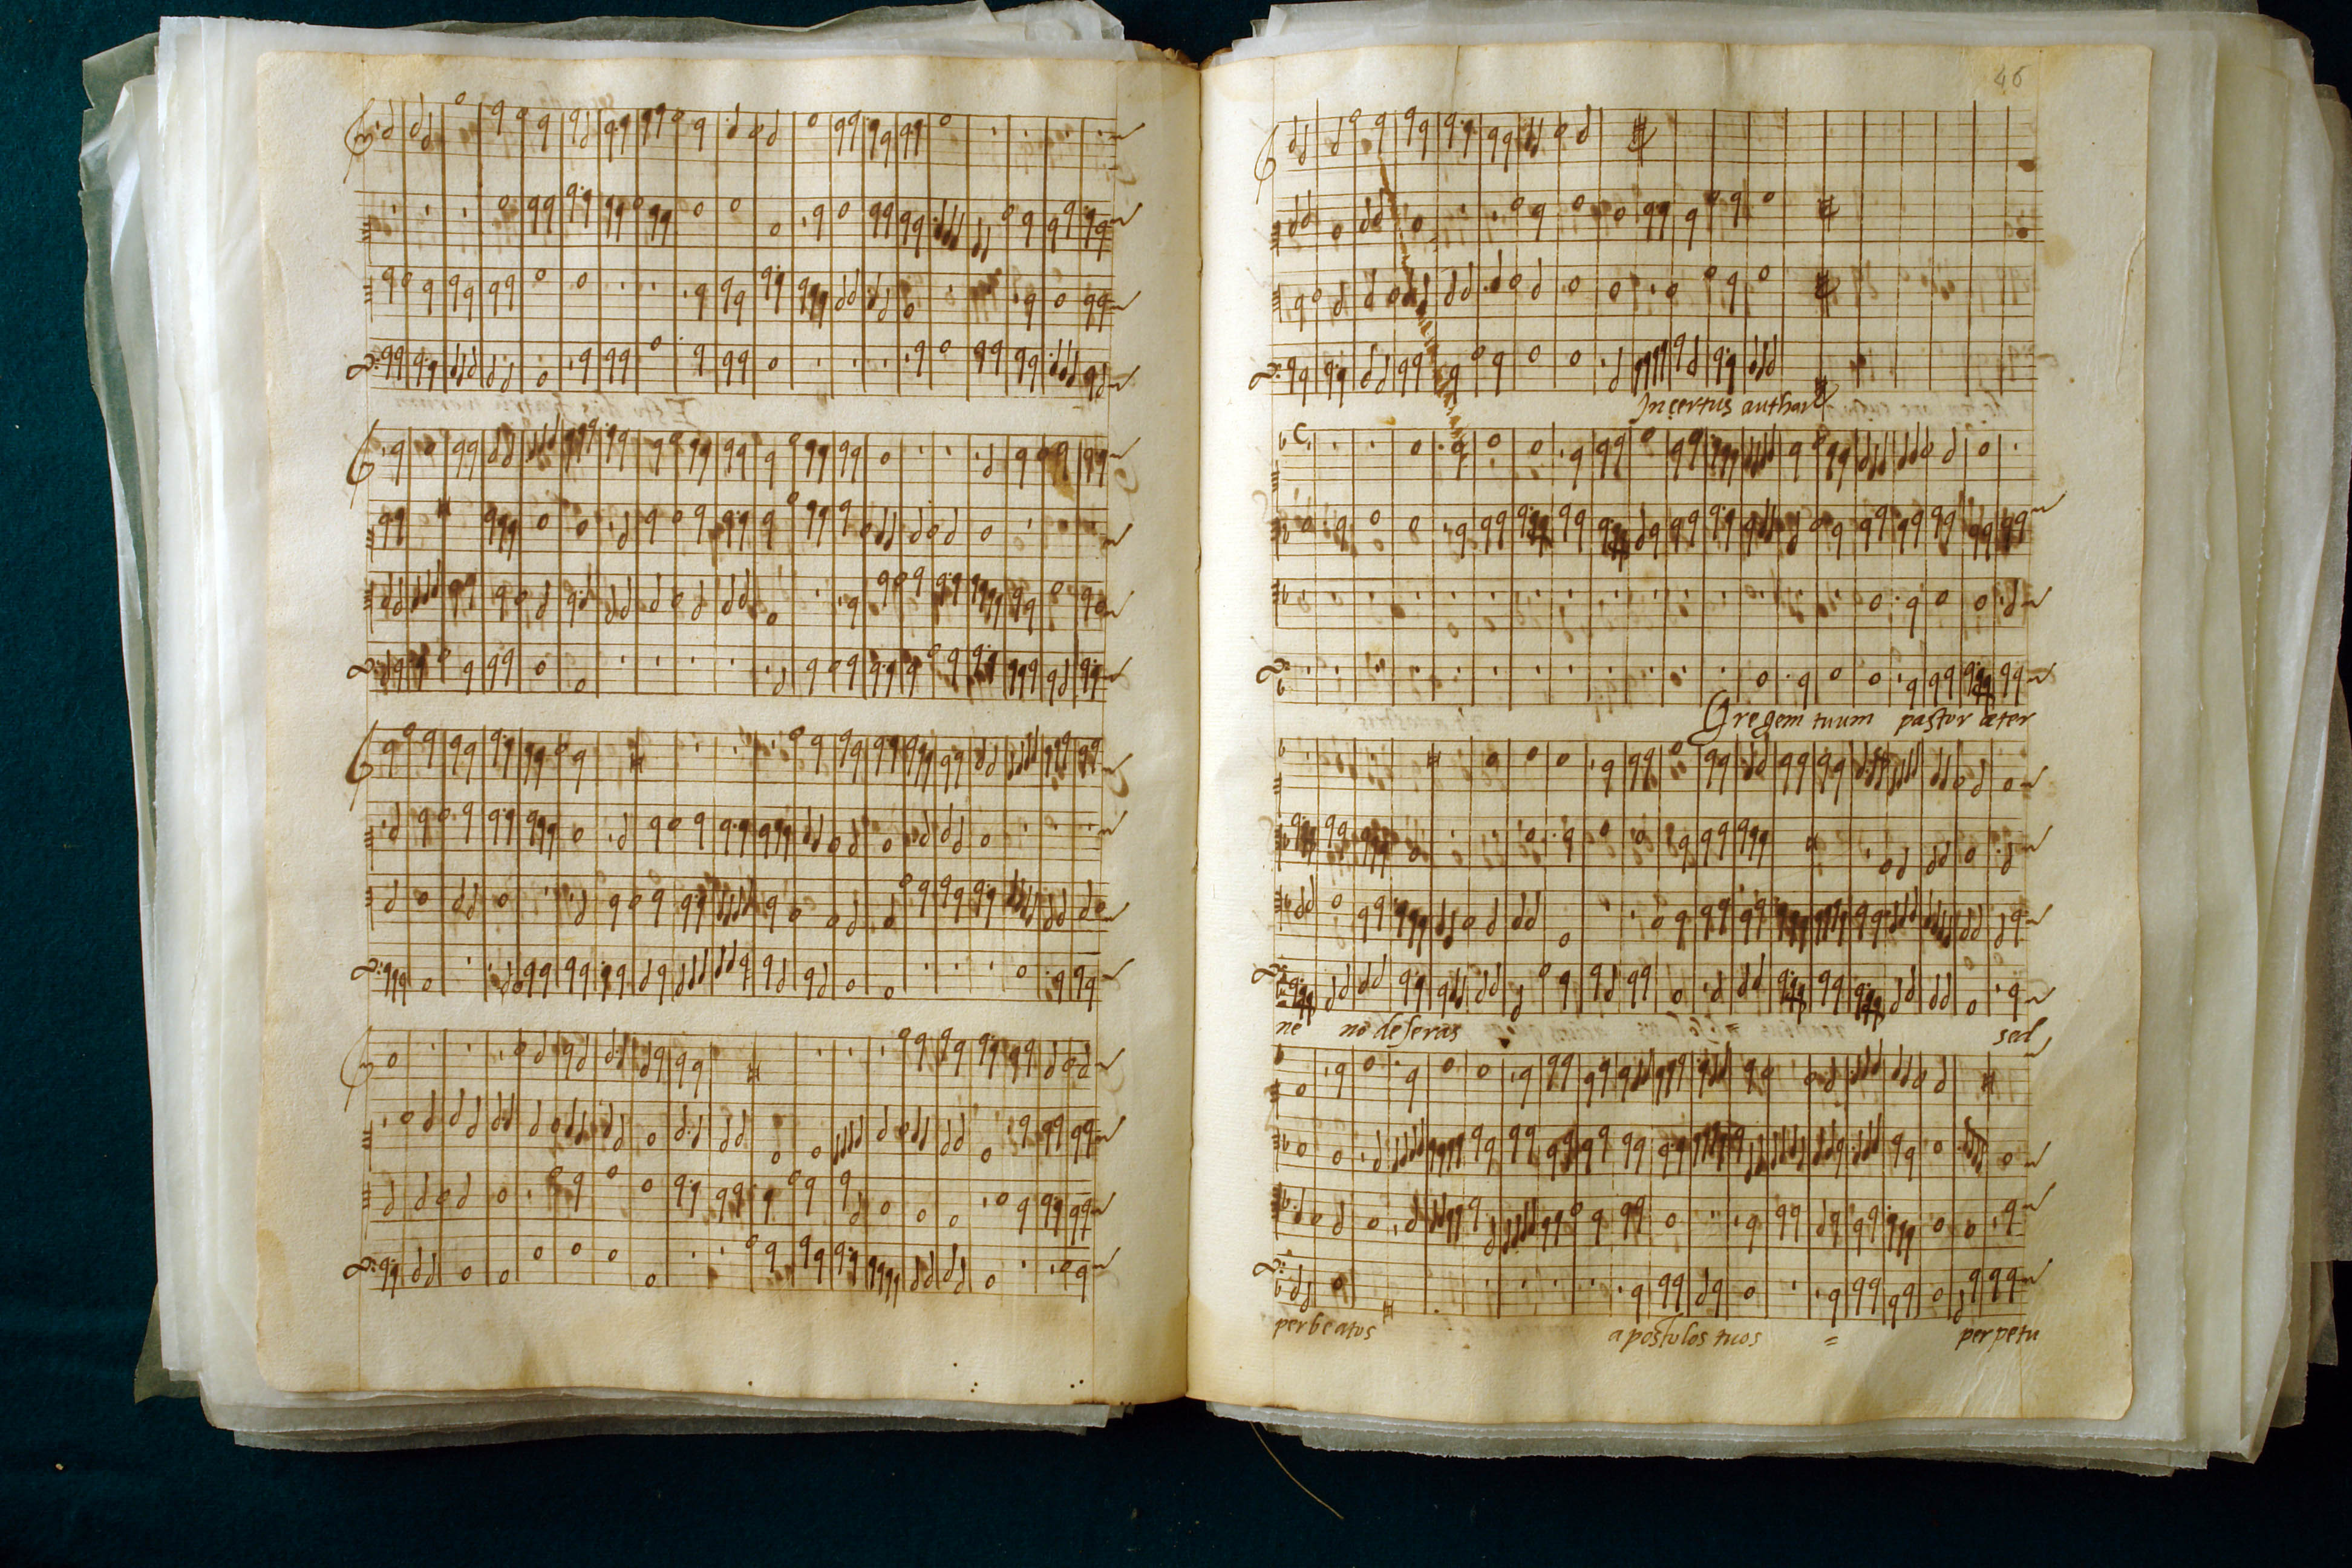 46
Incertus author
Gregem tuum pastor æter
ne nō deseras sed
per beatos apostolos tuos = perpetu